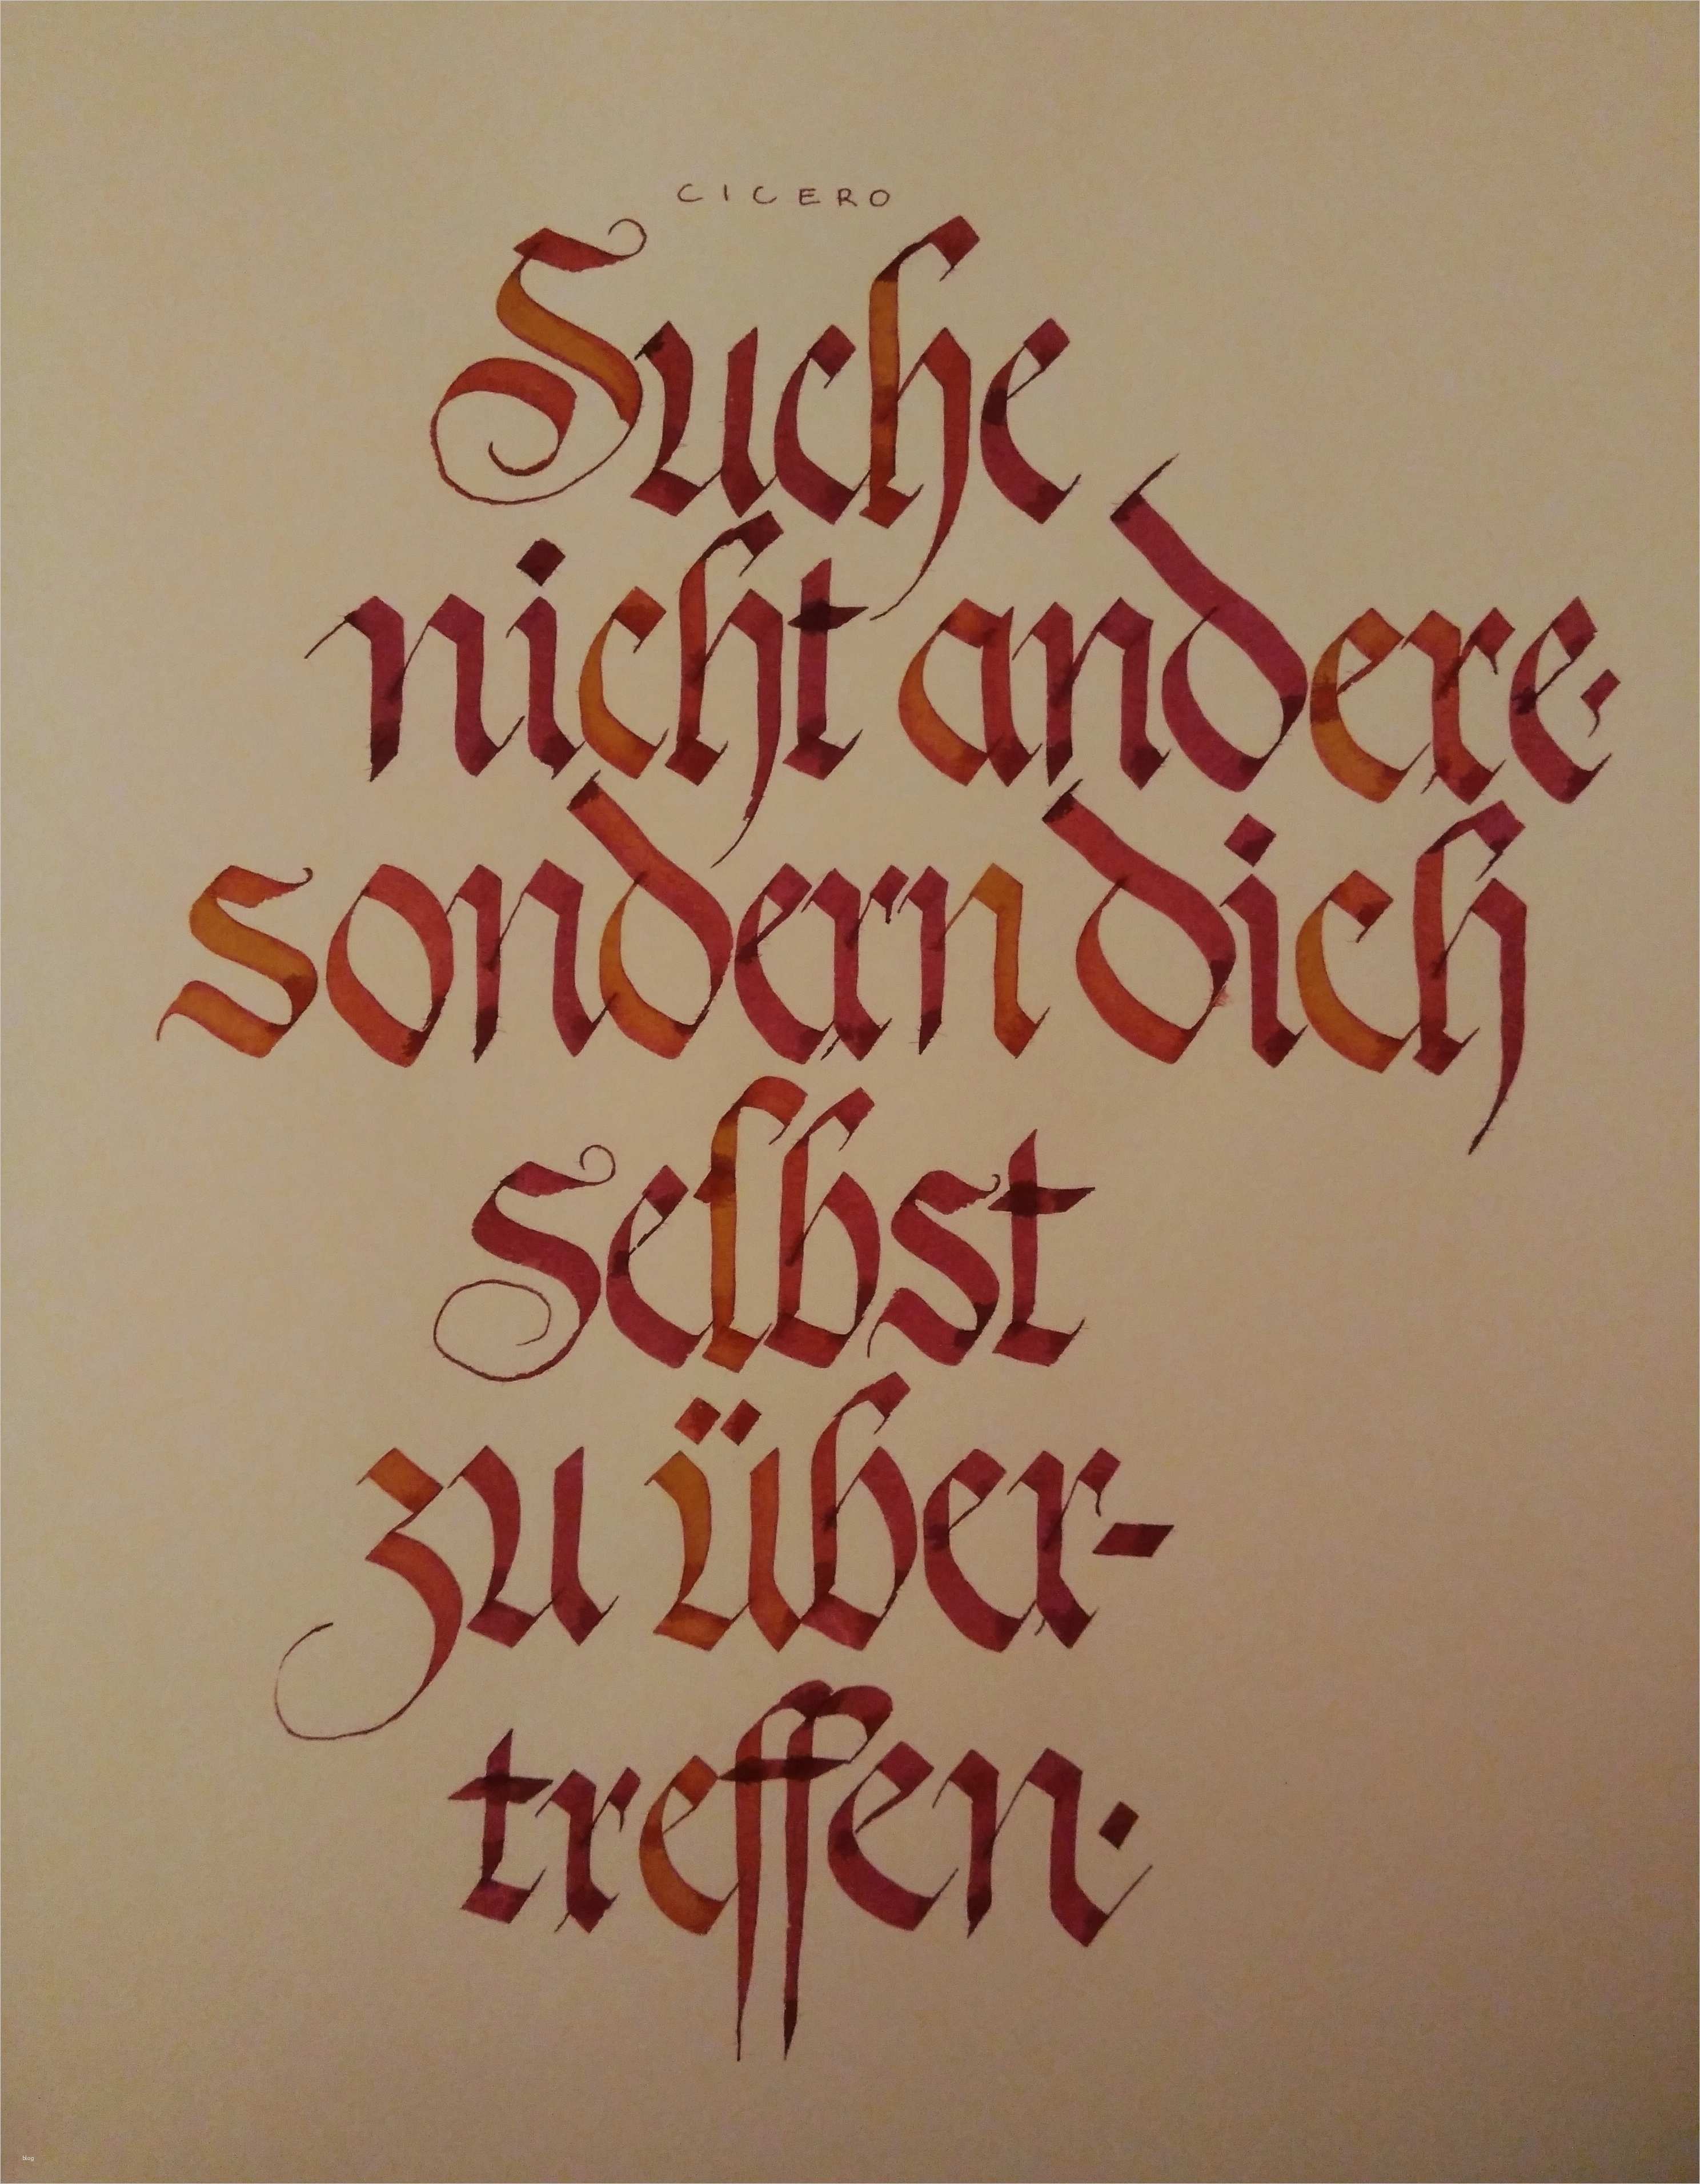 CICERO
Suche
nicht andere·
sondern dich
selbst
zu über-
treffen·
blog